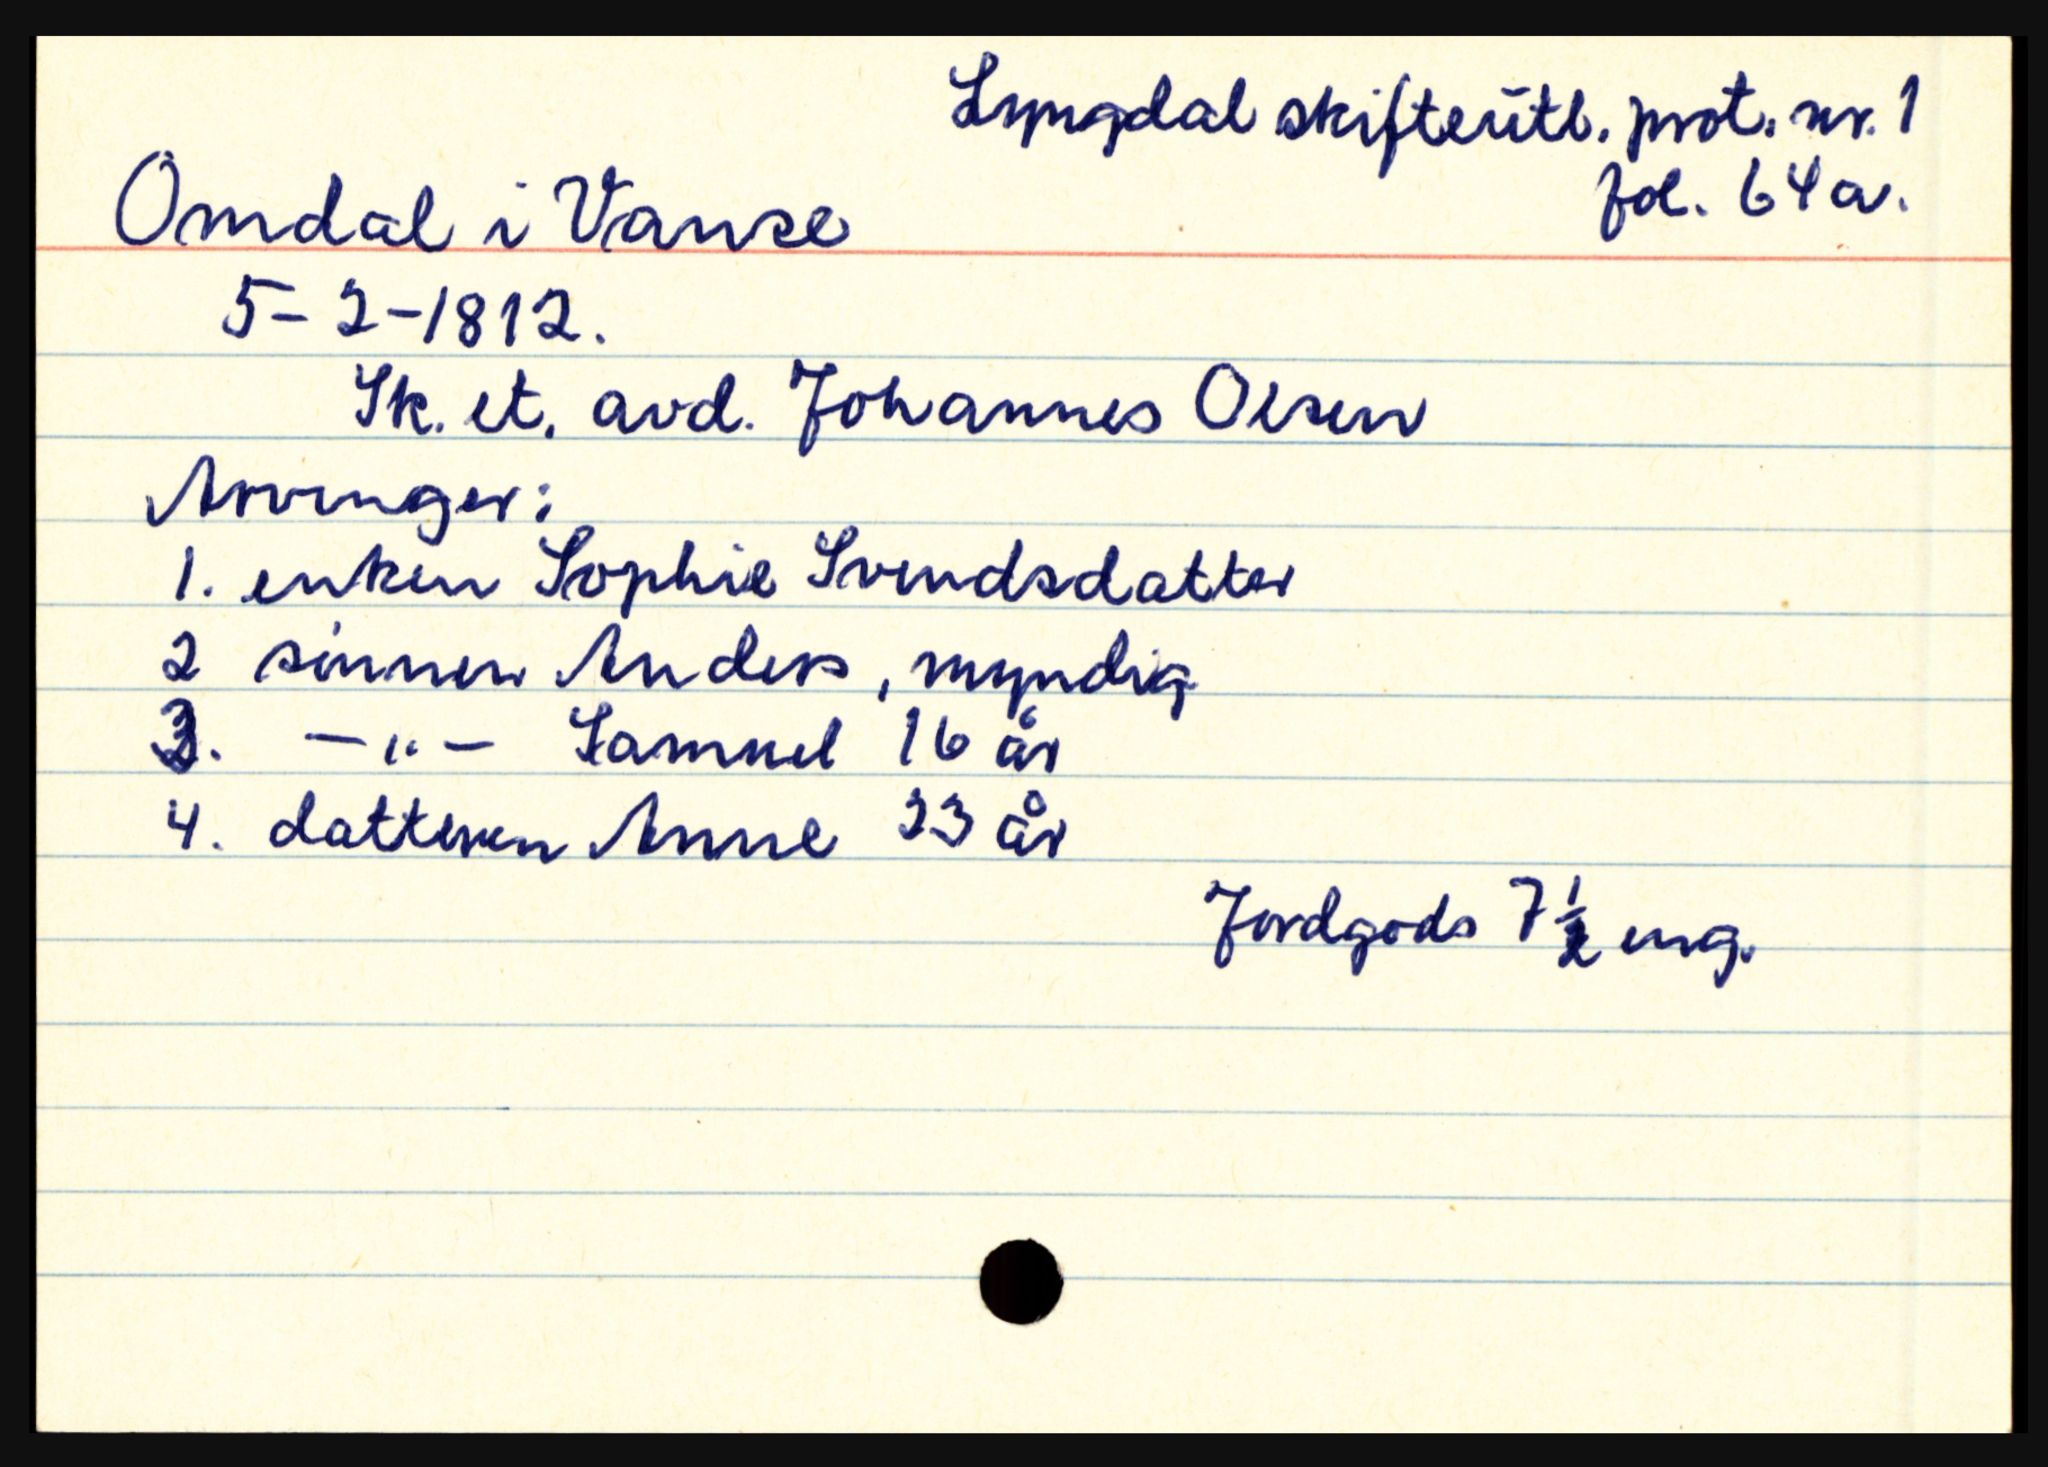 Lyngdal skifteutl. prot. nr. 1
fol. 64a.
Omdal i Vanse
5-2-1812.
Sk. et. avd. Johannes Olsen
Arvinger:
1. enken Sophie Svendsdatter
2 sønnen Anders, myndig
3. -"- Samuel 16 år
4. datteren Anne 23 år
Jordgods 7 1/2 eng.